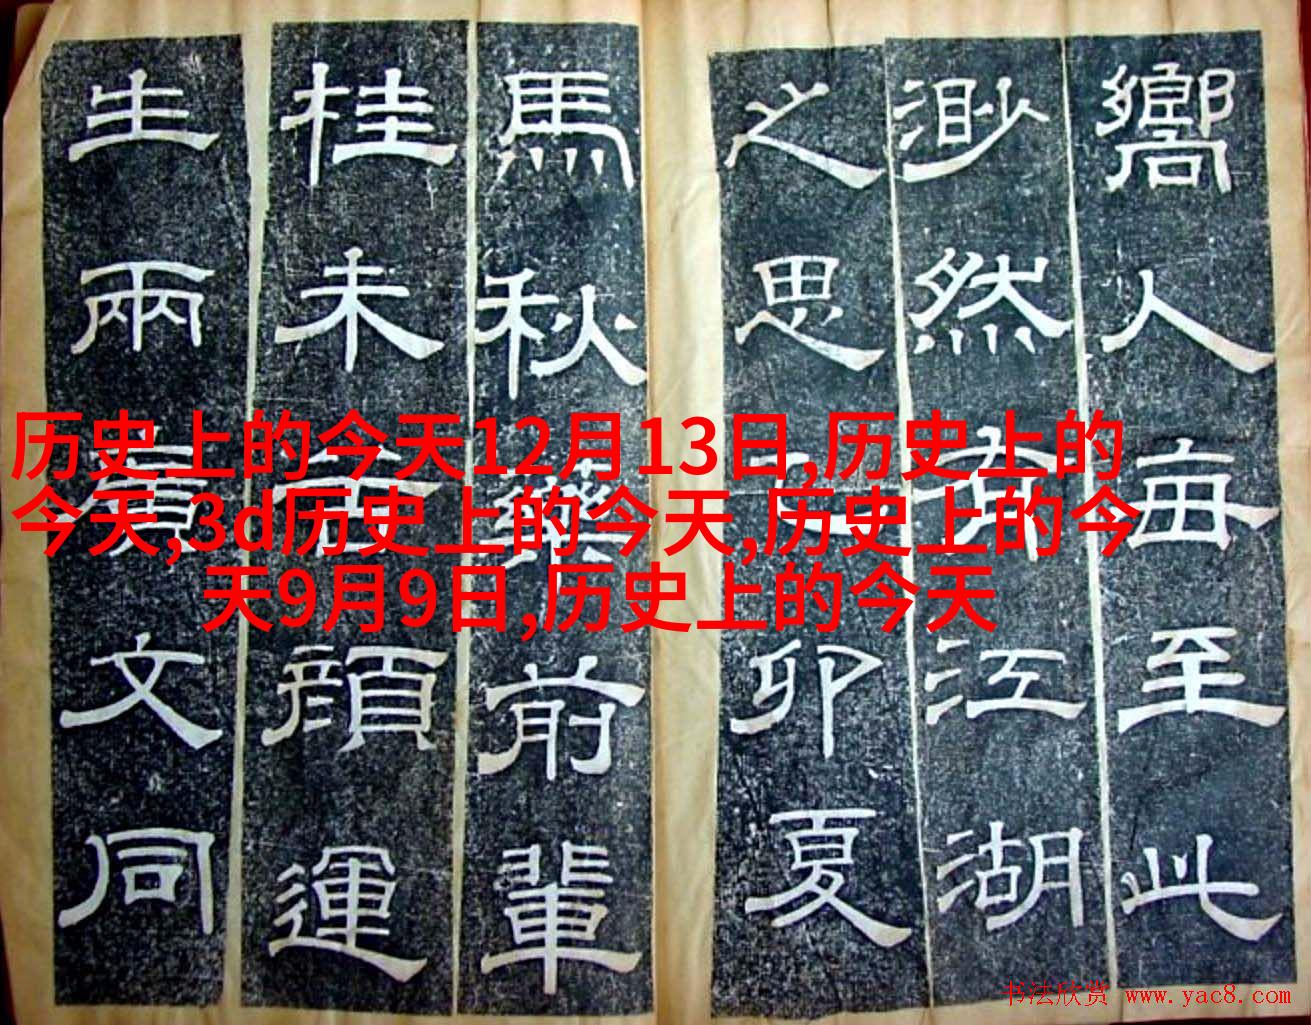 嚮人每至此
渺然有江湖
之思卯夏
馬秋藥前輩
桂未谷顏運
生兩廣文同
历史上的今天12月13日,历史上的
今天,3d历史上的今天,历史上的今
天9月9日,历史上的今天
书法欣赏 www.yac8.com